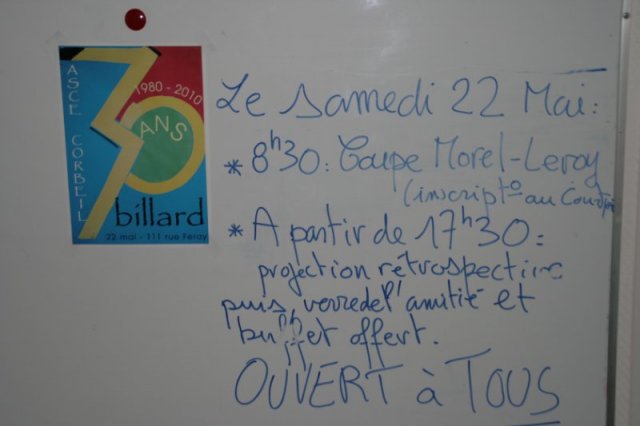 ASCE CORBEIL
30
1980 - 2010
ANS
billard
22 mai - 111 rue Feray
Le samedi 22 Mai :
* 8h30 : Coupe Morel-Leroy
(inscript° au
* A partir de 17h30 :
projection rétrospective
puis verre de l'amitié et
buffet offert.
OUVERT à TOUS